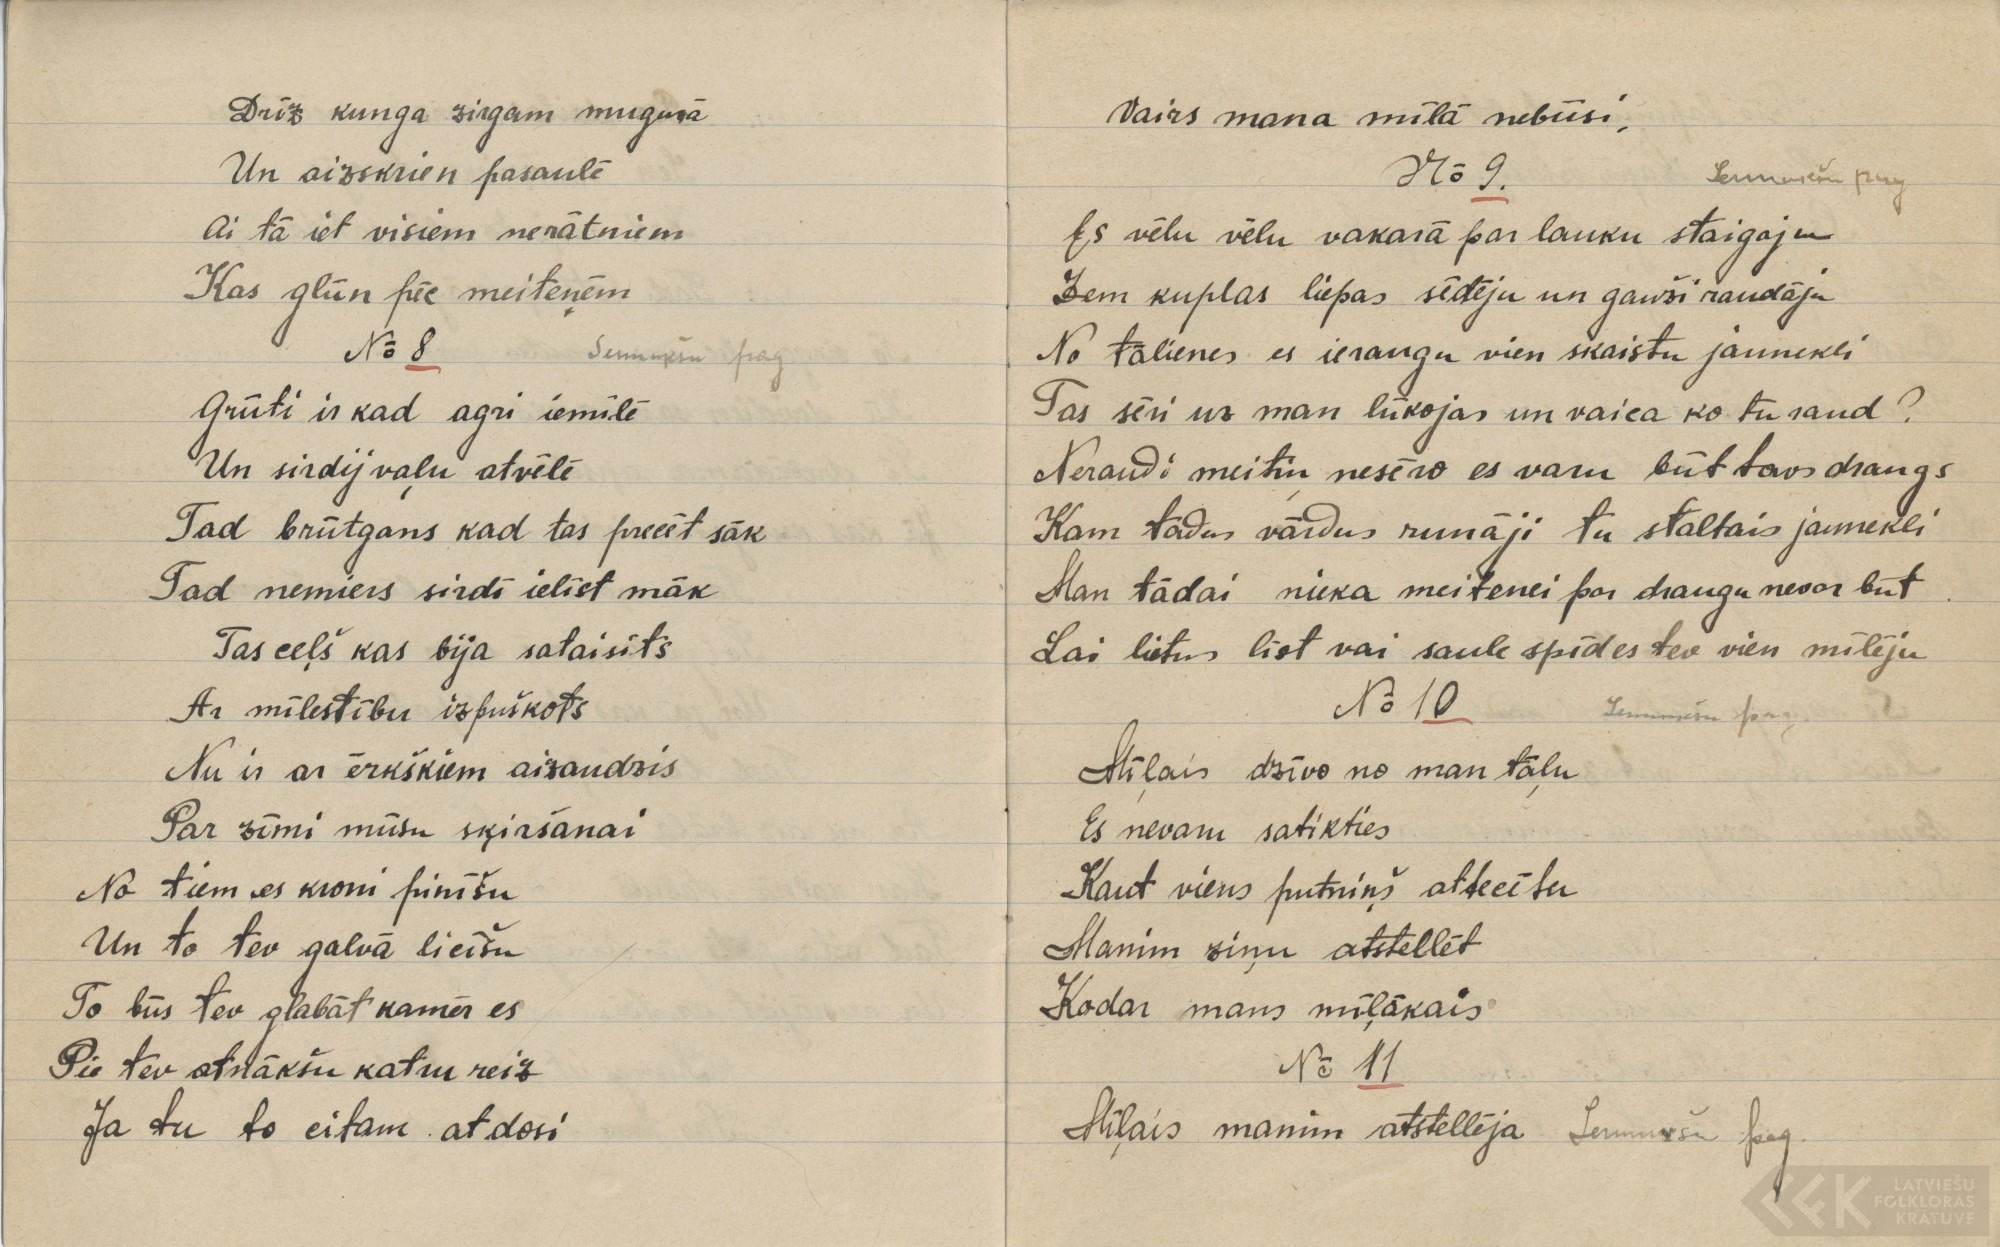 Drīz kunga zirgam mugurā
Un aizskrien pasaulē
Ai tā iet visiem nerātniem
Kas glūn pēc meiteņēm
No 8 Lenmukšu pag
Grūti ir kad agri iemīlē
Un sirdij vaļu atvēlē
Tad brūtgans kad tas precēt sāk
Tad nemiers sirdī ielīst māk
Tas ceļš kas bija sataisīts
Ar mīlestību izpuškots
Nu ir ar ērkšķiem aizaudzis
Par zīmi mūsu šķiršanai
No tiem es kroni pinīšu
Un to tev galvā licīšu
To būs tev glabāt kamēr es
Pie tev atnākšu katru reiz
Ja tu to citam atdosi
Vairs mana mīlā nebūsi,
No 9. pag
Es vēlu vēlu vakarā par lauku staigāju
Zem kuplas liepas sēdēju un gauži raudāju
No tālienes es ieraugu vien skaistu jaunekli
Tas sēri uz man lūkojas un vaica ko tu raud?
Neraudi meitiņ nesēro es varu būt tavs draugs
Kam tādus vārdus runāji tu staltais jaunekli
Man tādai nieka meitenei par draugu nevar būt
Lai lietus līst vai saule spīdes tev vien mīlēju
No 10 pag.
Mīļais dzīvo no man tāļu
Es nevaru satikties
Kaut viens putniņš attecētu
Manim ziņu atstellēt
Kodar mans mīļākais
No 11
Mīļais manim atstellēja pag.
LATVIEŠU
FOLKLORAS
KRĀTUVE